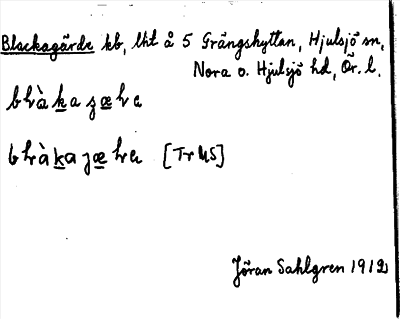 Blackagärde kb, lht å 5 Grängshyttan, Hjulsjö sn,
Nora o. Hjulsjö hd, Ör. l.
bhràkagæha
bhràkagæha [Tr ULS]
Jöran Sahlgren 1912